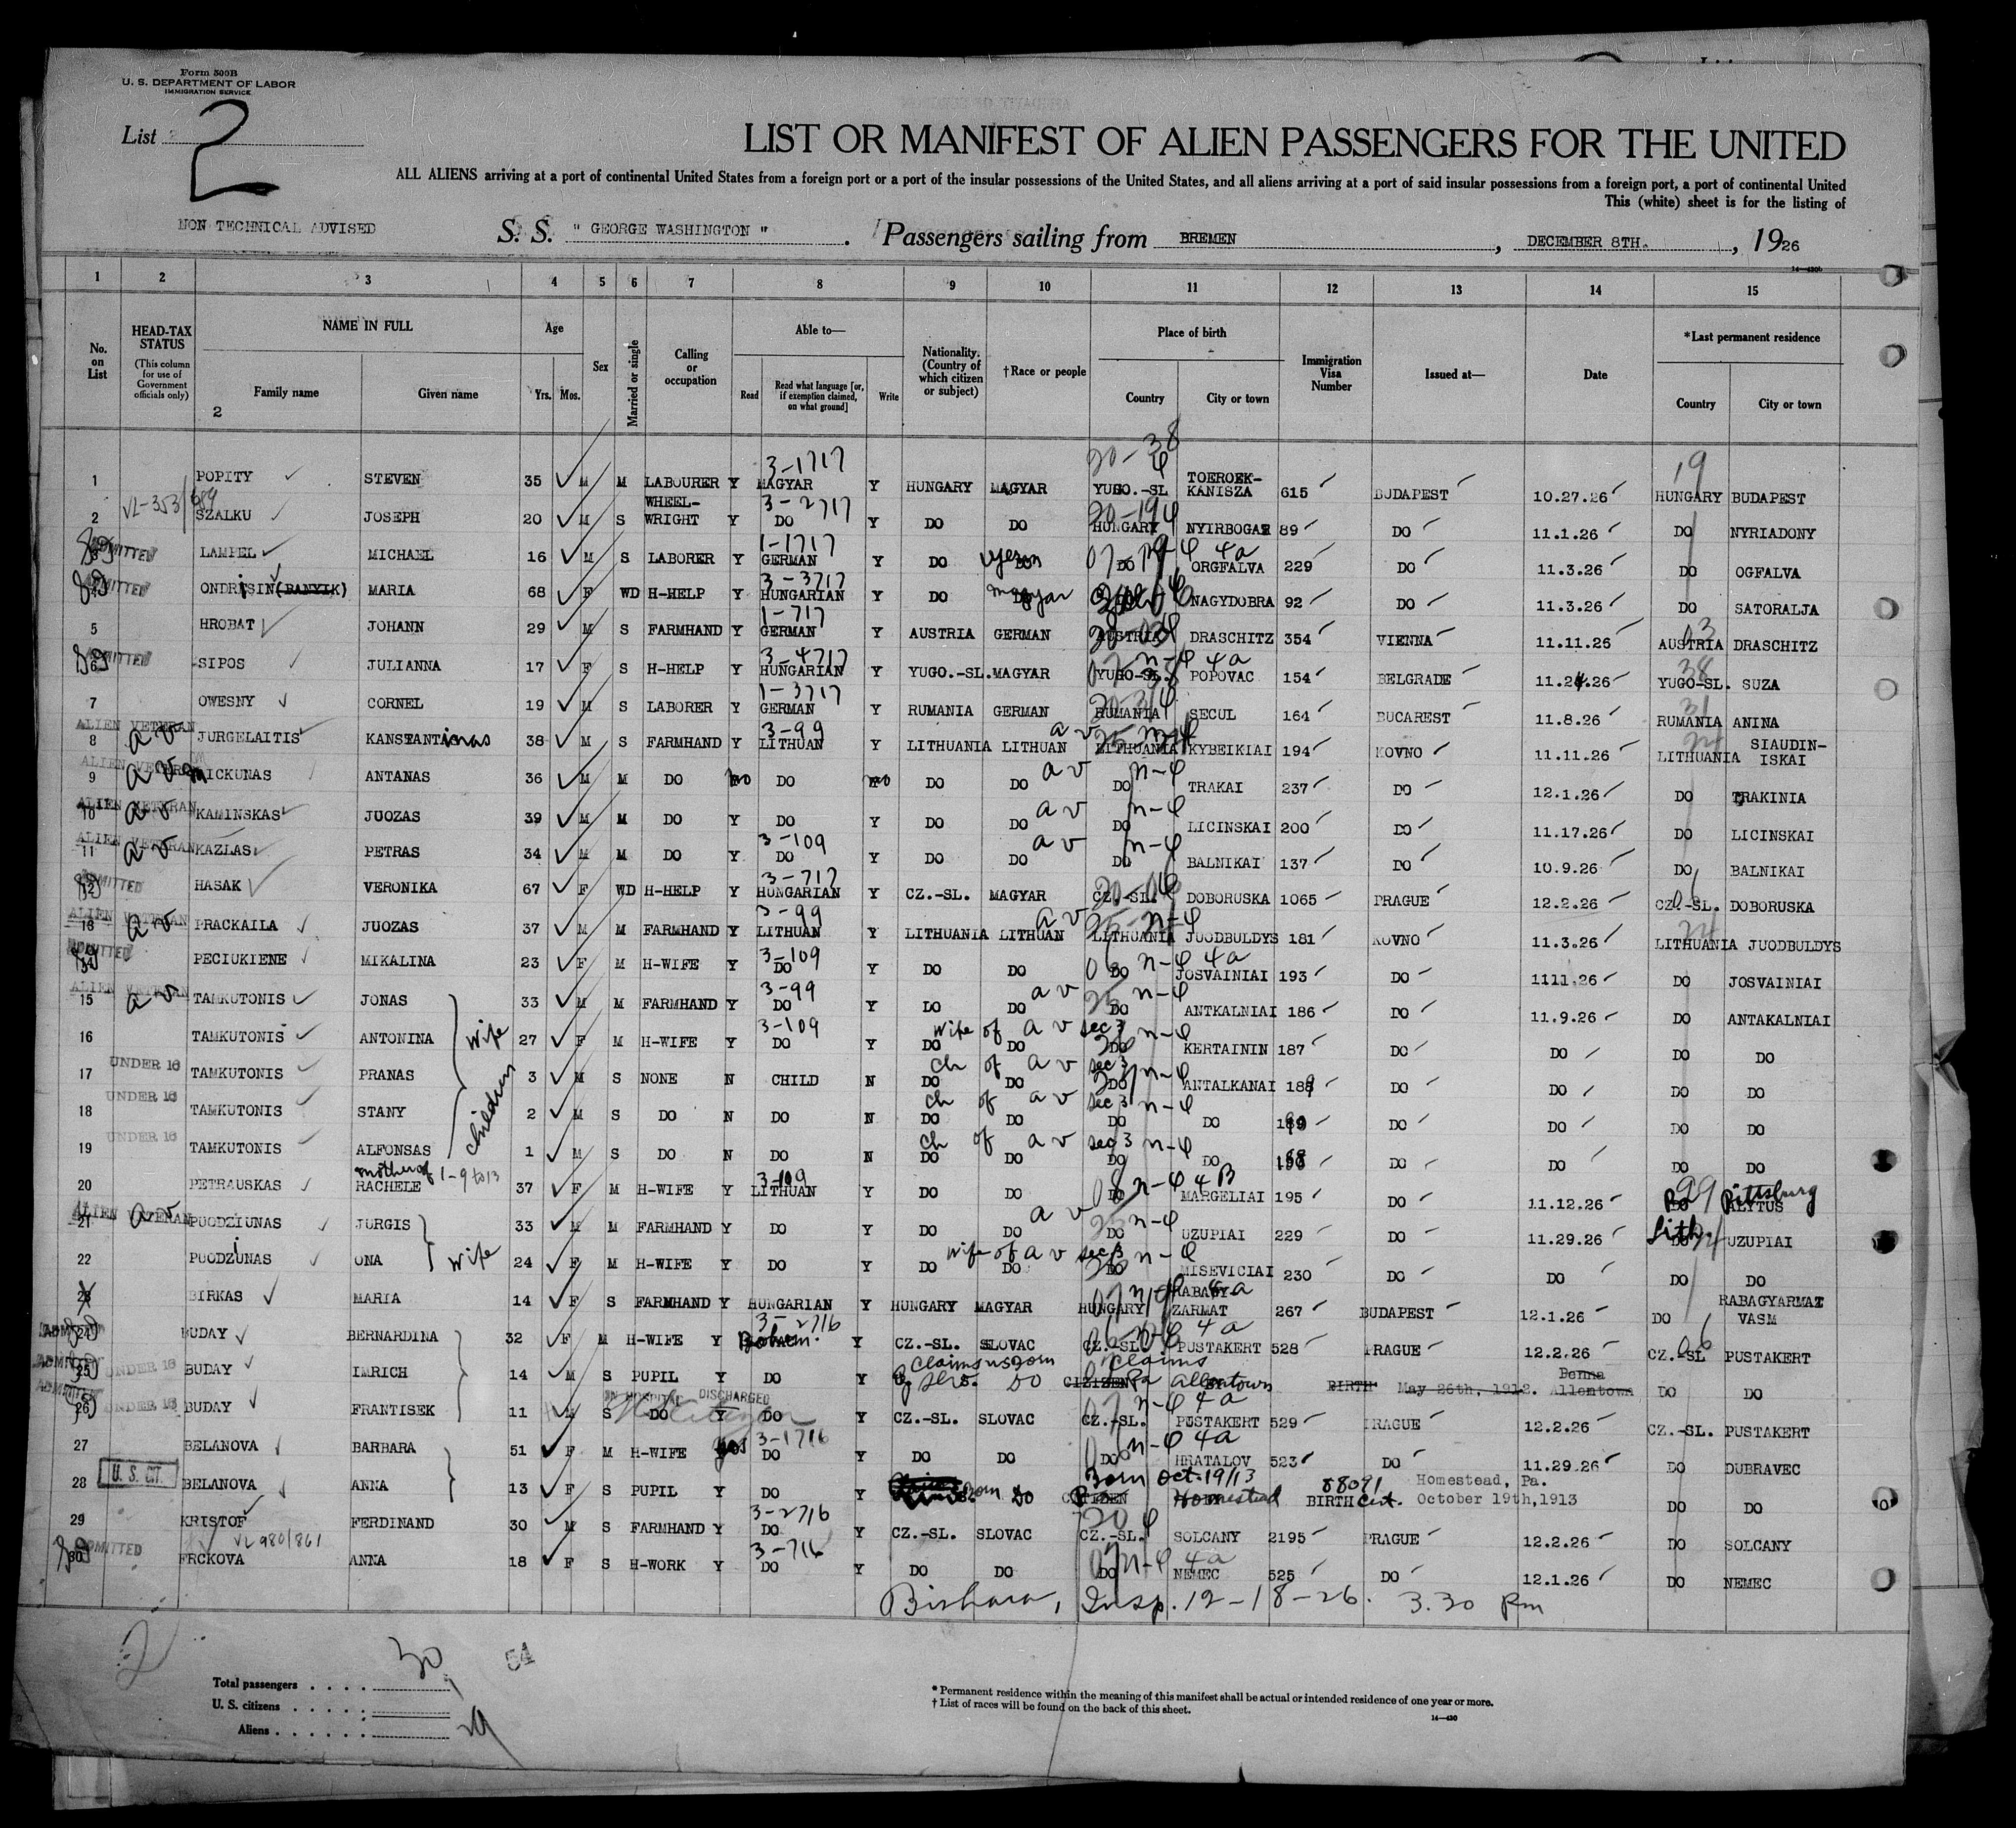 Form 500B
U. S. DEPARTMENT OF LABOR
IMMIGRATION SERVICE
List 2
2
LIST OR MANIFEST OF ALIEN PASSENGERS FOR THE UNITED
ALL ALIENS arriving at a port of continental United States from a foreign port or a port of the insular possessions of the United States, and all aliens arriving at a port of said insular possessions from a foreign port, a port of continental United
This (white) sheet is for the listing of
NON TECHNICAL ADVISED S. S. " GEORGE WASHINGTON " . Passengers sailing from BREMEN , DECEMBER 8TH. , 1926
1 2 3 4 5 6 7 8 9 10 11 12 13 14 15
No. on List HEAD-TAX STATUS (This column for use of Government officials only) NAME IN FULL Family name Given name Age Yrs. Mos. Sex Married or single Calling or occupation Able to— Read Read what language [or, if exemption claimed, on what ground] Write Nationality. (Country of which citizen or subject) †Race or people Place of birth Country City or town Immigration Visa Number Issued at— Date *Last permanent residence Country City or town
2
20-38
3-1717 19
1 POPITY STEVEN 35 M M LABOURER Y MAGYAR Y HUNGARY MAGYAR YUGO.-SL TOEROEK-KANISZA 615 BUDAPEST 10.27.26 HUNGARY BUDAPEST
VL-353/ 3-2717 20-19
2 SZALKU JOSEPH 20 M S WHEEL-WRIGHT Y DO Y DO DO HUNGARY NYIRBOGAR 89 DO 11.1.26 DO NYRIADONY
ADMITTED 1-1717 4a
3 LAMPEL MICHAEL 16 M S LABORER Y GERMAN Y DO DO DO ORGFALVA 229 DO 11.3.26 DO OGFALVA
ADMITTED 3-3717
ONDRISIN (BANYIK) MARIA 68 F WD H-HELP Y HUNGARIAN Y DO magyar NAGYDOBRA 92 DO 11.3.26 DO SATORALJA
1-717
5 HROBAT JOHANN 29 M S FARMHAND Y GERMAN Y AUSTRIA GERMAN AUSTRIA DRASCHITZ 354 VIENNA 11.11.26 AUSTRIA DRASCHITZ
ADMITTED 3-4717 n-4 4a 38
6 SIPOS JULIANNA 17 F S H-HELP Y HUNGARIAN Y YUGO.-SL. MAGYAR YUGO-SL. POPOVAC 154 BELGRADE 11.24.26 YUGO-SL. SUZA
1-3717 31
7 OWESNY CORNEL 19 M S LABORER Y GERMAN Y RUMANIA GERMAN RUMANIA SECUL 164 BUCAREST 11.8.26 RUMANIA ANINA
ALIEN VETERAN av 3-99 av
8 JURGELAITIS KANSTANTinas 38 M S FARMHAND Y LITHUAN Y LITHUANIA LITHUAN LITHUANIA KYBEIKIAI 194 KOVNO 11.11.26 LITHUANIA SIAUDIN-ISKAI
ALIEN VETERAN av av n-4
9 MICKUNAS ANTANAS 36 M M DO no DO no DO DO DO TRAKAI 237 DO 12.1.26 DO TRAKINIA
ALIEN VETERAN av av n-4
10 KAMINSKAS JUOZAS 39 M M DO Y DO Y DO DO DO LICINSKAI 200 DO 11.17.26 DO LICINSKAI
ALIEN VETERAN av 3-109 av n-4
11 KAZLAS PETRAS 34 M M DO Y DO Y DO DO DO BALNIKAI 137 DO 10.9.26 DO BALNIKAI
ADMITTED 3-717
12 HASAK VERONIKA 67 F WD H-HELP Y HUNGARIAN Y CZ.-SL. MAGYAR CZ.-SL. DOBORUSKA 1065 PRAGUE 12.2.26 CZ.-SL. DOBORUSKA
ALIEN VETERAN av 3-99 av n-4 24
13 PRACKAILA JUOZAS 37 M M FARMHAND Y LITHUAN Y LITHUANIA LITHUAN LITHUANIA JUODBULDYS 181 KOVNO 11.3.26 LITHUANIA JUODBULDYS
ADMITTED 3-109 n-4 4a
14 PECIUKIENE MIKALINA 23 F M H-WIFE Y DO Y DO DO DO JOSVAINIAI 193 DO 1111.26 DO JOSVAINIAI
ALIEN VETERAN av 3-99 av n-4
15 TAMKUTONIS JONAS 33 M M FARMHAND Y DO Y LO DO DO ANTKALNIAI 186 DO 11.9.26 DO ANTAKALNIAI
wife 3-109 wife of av sec 3 n-4
16 TAMKUTONIS ANTONINA 27 F M H-WIFE Y DO Y DO DO DO KERTAININ 187 DO DO DO DO
UNDER 16 children ch of av sec 3 n-4
17 TAMKUTONIS PRANAS 3 M S NONE N CHILD N DO DO DO ANTALKANAI 188 DO DO DO DO
UNDER 16 ch of av sec 3 n-4
18 TAMKUTONIS STANY 2 M S DO N DO N DO DO DO DO DO DO DO DO
UNDER 16 ch of av sec 3 n-4
19 TAMKUTONIS ALFONSAS 1 M S DO N DO N DO DO DO DO DO DO DO DO
mother of 1-9 to 13 3-109 n-4 4B 99 Pittsburg
20 PETRAUSKAS RACHELE 37 F M H-WIFE Y LITHUAN Y DO DO DO MARGELIAI 195 DO 11.12.26 Pa ALYTUS
ALIEN VETERAN av av n-4
21 PUODZIUNAS JURGIS 33 M M FARMHAND Y DO Y DO DO DO UZUPIAI 229 DO 11.29.26 Lith. UZUPIAI
wife wife of av sec 3 n-4
22 PUODZIUNAS ONA 24 F M H-WIFE Y DO Y DO DO DO MISEVICIAI 230 DO DO DO DO
23 BIRKAS MARIA 14 F S FARMHAND Y HUNGARIAN Y HUNGARY MAGYAR HUNGARY RABAGY-ZARMAT 267 BUDAPEST 12.1.26 DO RABAGYARMAT VASM
ADMITTED 3-2716 4a 06
24 BUDAY BERNARDINA 32 F M H-WIFE Y Bohem. Y CZ.-SL. SLOVAC CZ.-SL PUSTAKERT 528 PRAGUE 12.2.26 CZ.-SL PUSTAKERT
ADMITTED UNDER 16 Claims US Born Claims
25 BUDAY IMRICH 14 M S PUPIL Y DO Y DO CITIZEN Pa Allentown BIRTH May 26th, 1912. Penna Allentown DO DO
ADMITTED UNDER 16 IN HOSPITAL DISCHARGED n-4 4a
26 BUDAY FRANTISEK 11 M S DO Y DO Y CZ.-SL. SLOVAC CZ.-SL. PUSTAKERT 529 PRAGUE 12.2.26 CZ.-SL. PUSTAKERT
3-1716 n-4 4a
27 BELANOVA BARBARA 51 F M H-WIFE yes DO Y DO DO DO HRATALOV 523 DO 11.29.26 DO DUBRAVEC
U. S. CIT. Born Oct. 19/13 88091 Homestead, Pa.
28 BELANOVA ANNA 13 F S PUPIL Y DO Y born DO CITIZEN Homestead BIRTH Cert. October 19th, 1913 DO DO
3-2716
29 KRISTOF FERDINAND 30 M S FARMHAND Y DO Y CZ.-SL. SLOVAC CZ.-SL. SOLCANY 2195 PRAGUE 12.2.26 DO SOLCANY
ADMITTED VL 980/861 3-716 n-4 4a
30 FRCKOVA ANNA 18 F S H-WORK Y DO Y DO DO DO NEMEC 525 DO 12.1.26 DO NEMEC
Bishara, Insp. 12-18-26. 3.30 Pm
2 30 54
Total passengers . . . .
U. S. citizens . . . . .
Aliens . . . . . . 29
* Permanent residence within the meaning of this manifest shall be actual or intended residence of one year or more.
† List of races will be found on the back of this sheet.
14—430